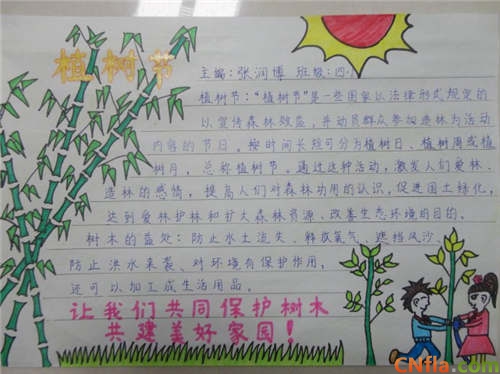 植树节
主编：张润博 班级：四.1
植树节："植树节"是一些国家以法律形式规定的
以宣传森林效益，并动员群众参加造林为活动
内容的节日，按时间长短可分为植树日、植树周或植
树月，总称植树节。通过这种活动，激发人们爱林、
造林的感情，提高人们对森林功用的认识，促进国土绿化，
达到爱林护林和扩大森林资源、改善生态环境的目的。
树木的益处：防止水土流失、释放氧气、遮挡风沙、
防止洪水来袭、对环境有保护作用，
还可以加工成生活用品。
让我们共同保护树木
共建美好家园！
CNfla.com